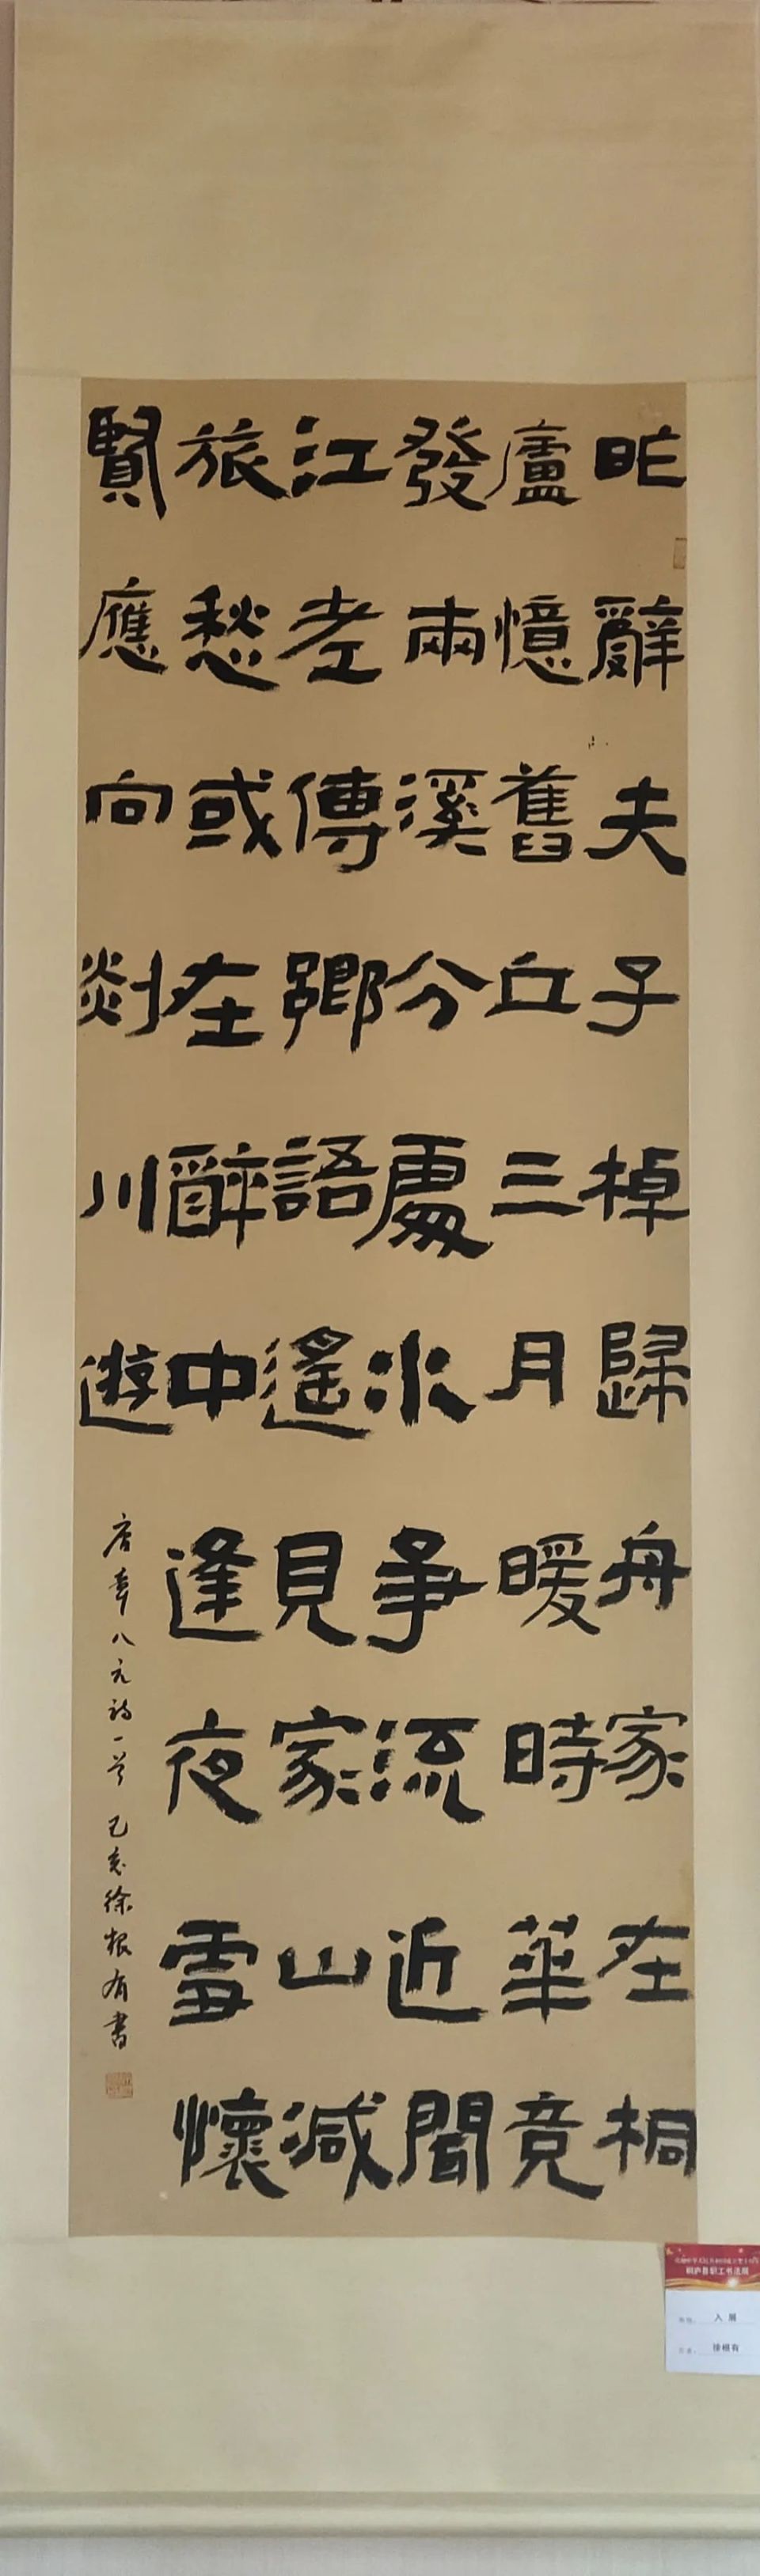 昨辭夫子棹歸舟家在桐
廬憶舊丘三月暖時華竞
發兩溪分處水爭流近聞
江老傳鄉語遙見家山減
旅愁或在醉中逢夜雪懷
賢應向剡川遊
唐章八元詩一首 己亥徐根有書
桐庐县职工书法展
入展
徐根有